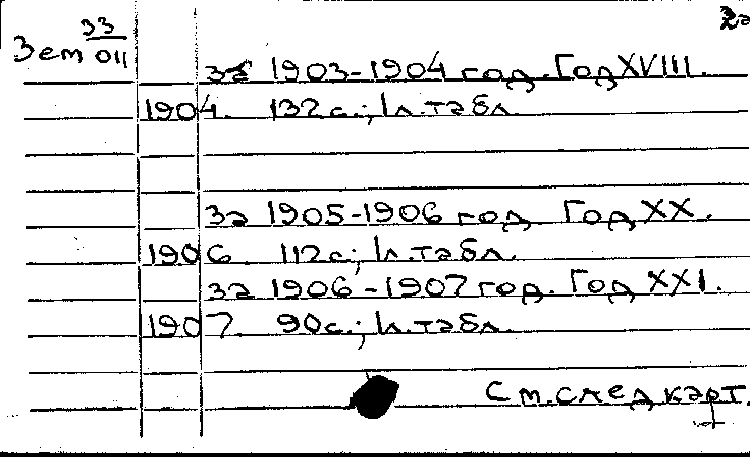 33
Зет 011
за 1903-1904 год. Год XVIII.
1904. 132с.; 1л.табл.
за 1905-1906 год Год XX.
1906. 112с.; 1л.табл.
за 1906-1907 год. Год XXI.
1907. 90с.; 1л.табл.
См.след карт.